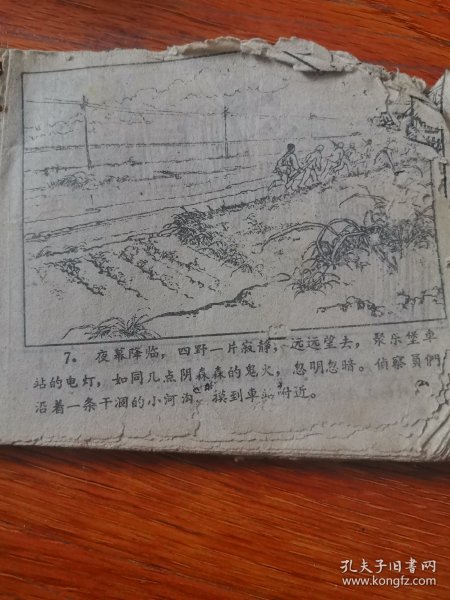 7。 夜幕降临，四野一片寂静，远远望去，聚乐堡车
站的电灯，如同几点阴森森的鬼火，忽明忽暗。侦察員們
沿着一条干涸的小河沟，摸到车站附近。
孔夫子旧书网
www.kongfz.com